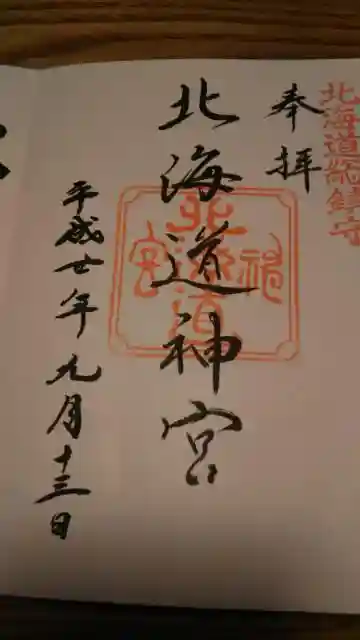 北海道総鎮守
奉拝
北海道神宮
北海道神宮
平成廿年九月十三日